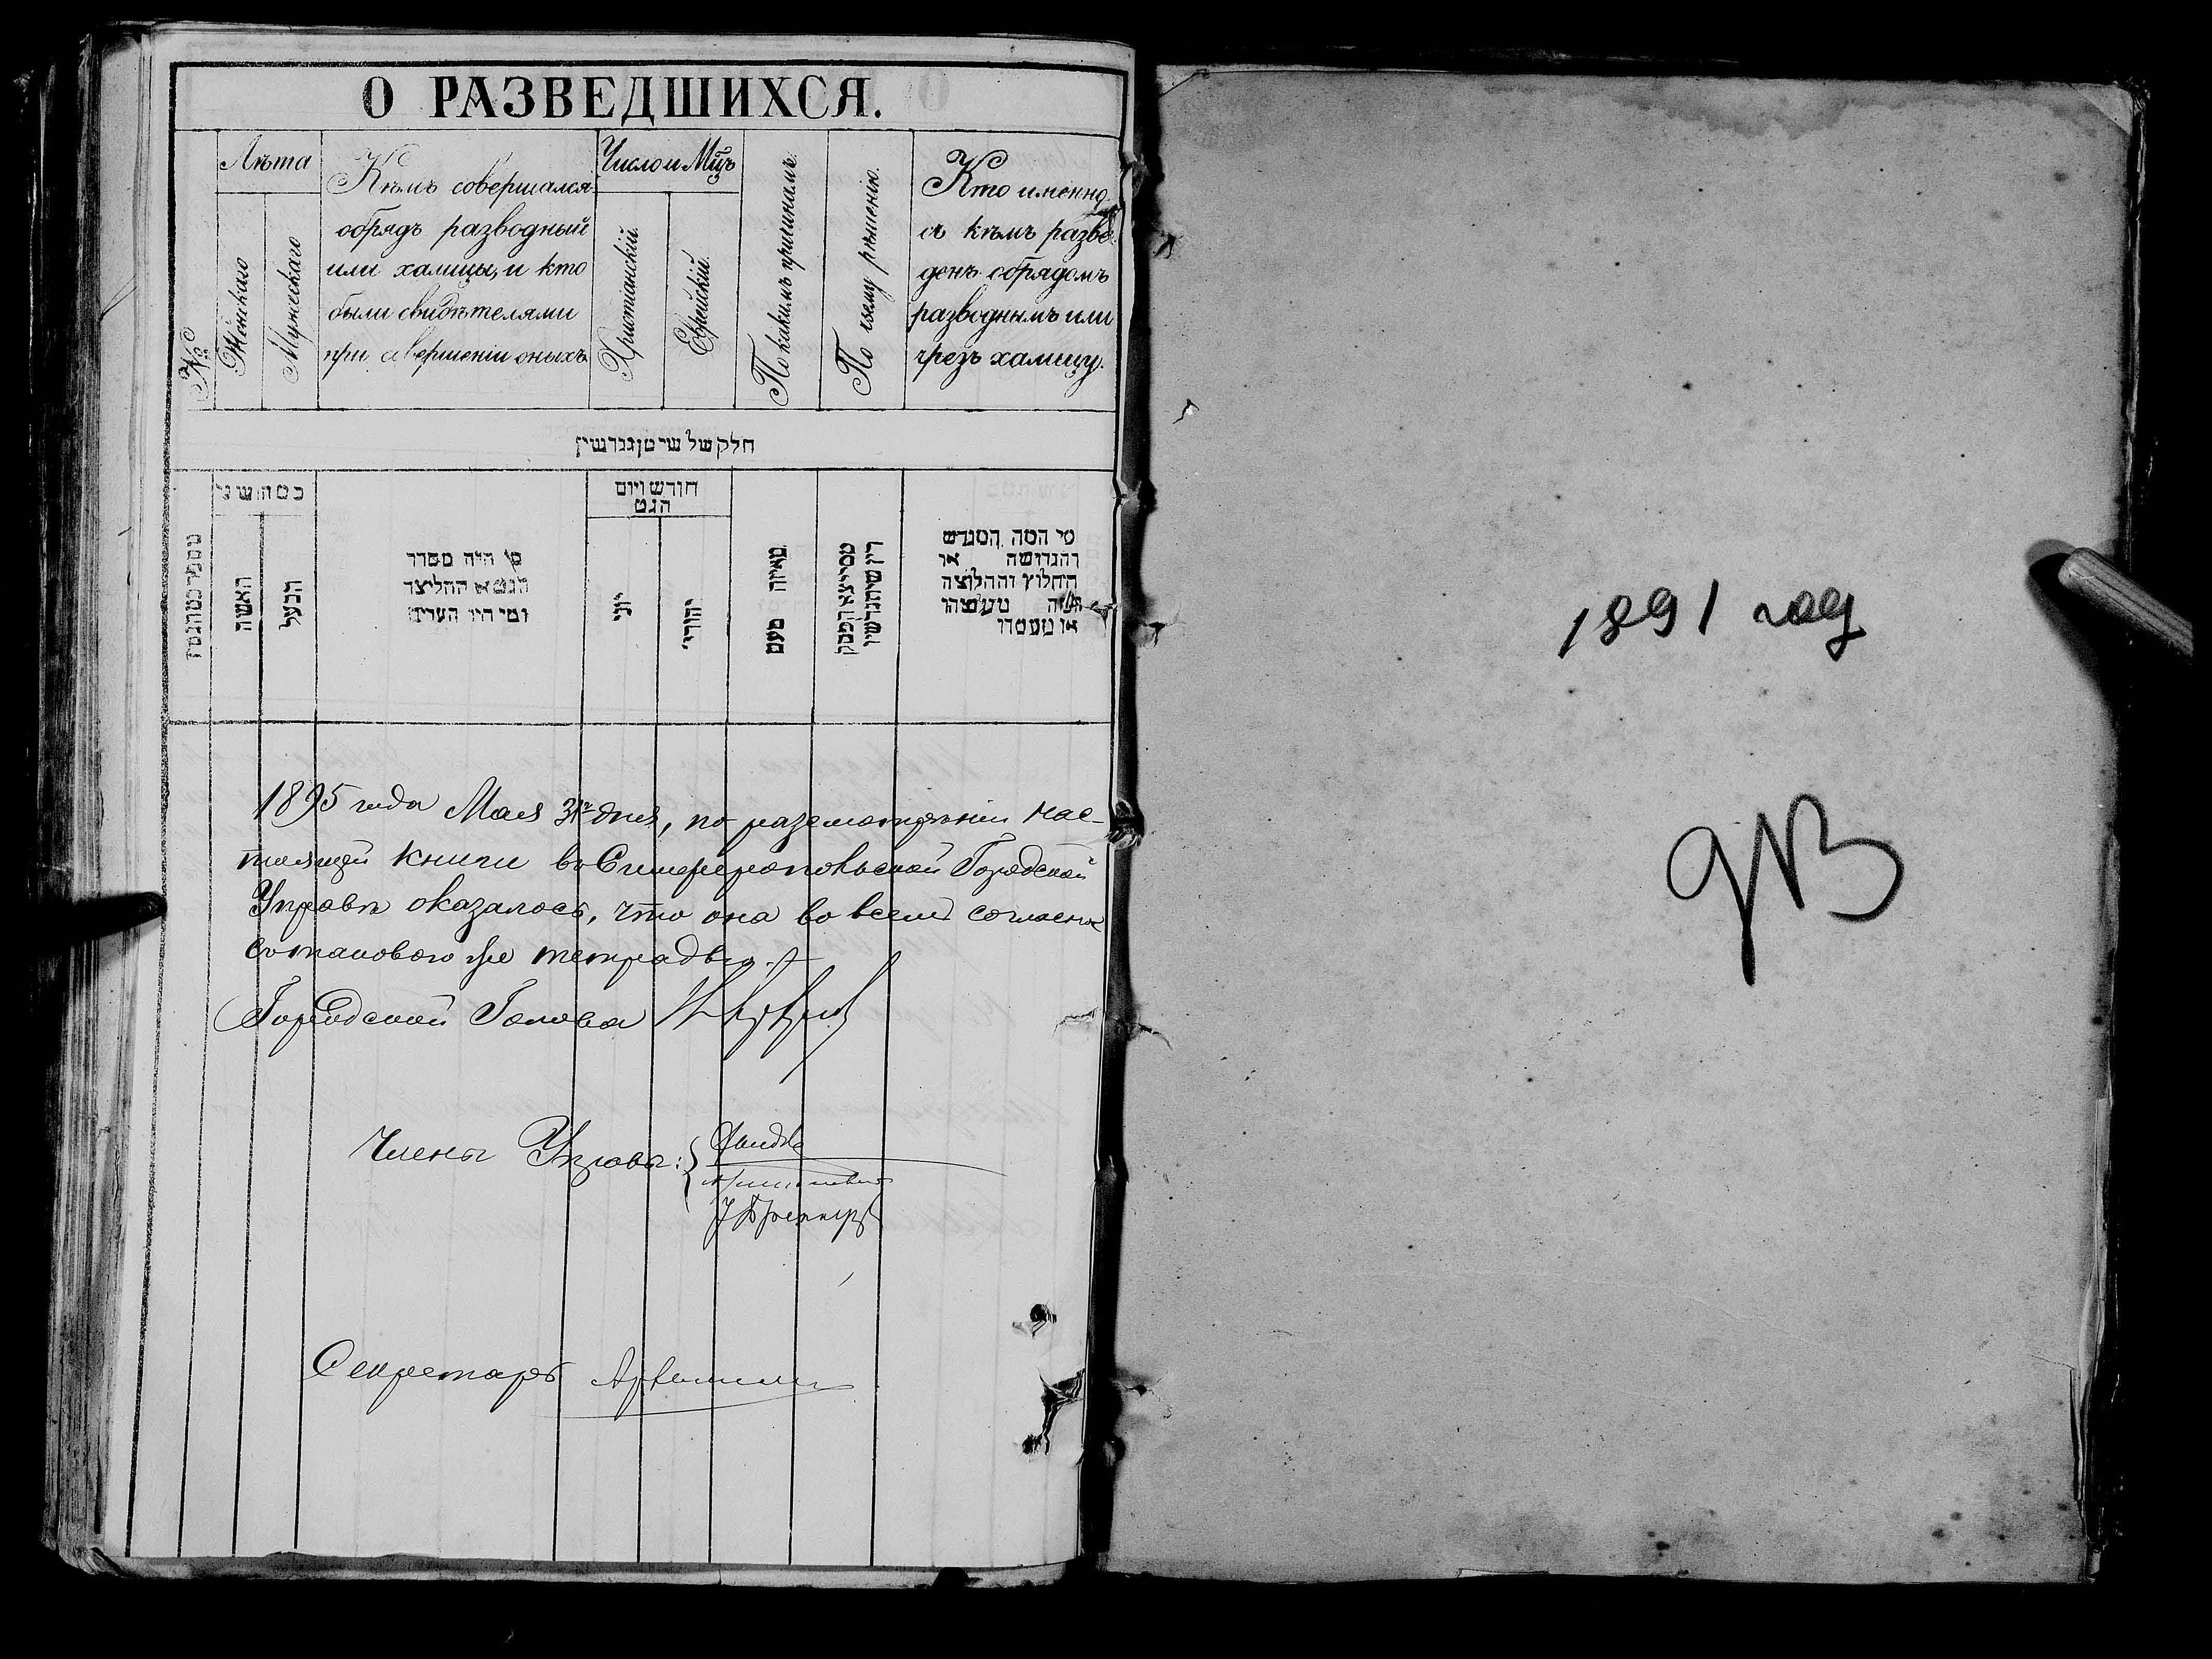 О РАЗВЕДШИХСЯ.
№
Лѣта
Женскаго
Мужескаго
Кѣмъ совершался
обрядъ разводный
или халицы, и кто
были свидѣтелями
при совершеніи оныхъ
Число и Мц̃ъ
Христіанскій.
Еврейскій.
По какимъ причинамъ.
По чьему рѣшенію.
Кто именно
съ кѣмъ разве
денъ обрядомъ
разводнымъ или
чрезъ халицу.
חלק של
האשה
הבעל
מי היה מסדר
ומי היו העדים
חודש ויום
הגט
יוני
יהודי
מאיזה טעם
או
החלוץ והחלוצה
1895 года Мая 31го дня, по разсмотрѣніи нас-
тоящей книги въ Симферопольской Городской
Управѣ оказалось, что она во всемъ согласна
съ таковою же тетрадью.
Городской Голова
Члены Управы:
Секретарь
1891 год